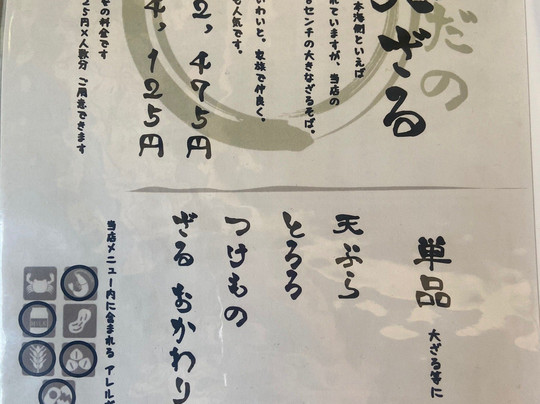 だの
ざる
本海側といえば
れていますが、当店の
センチの大きなざるそば。
いわいと、家族で仲良く、
も人気です。
2,475円
4,125円
の料金です
25円×人数分 ご用意できます
単品 大ざる等に
天ぷら
とろろ
つけもの
ざる おかわり
当店メニュー内に含まれる アレル